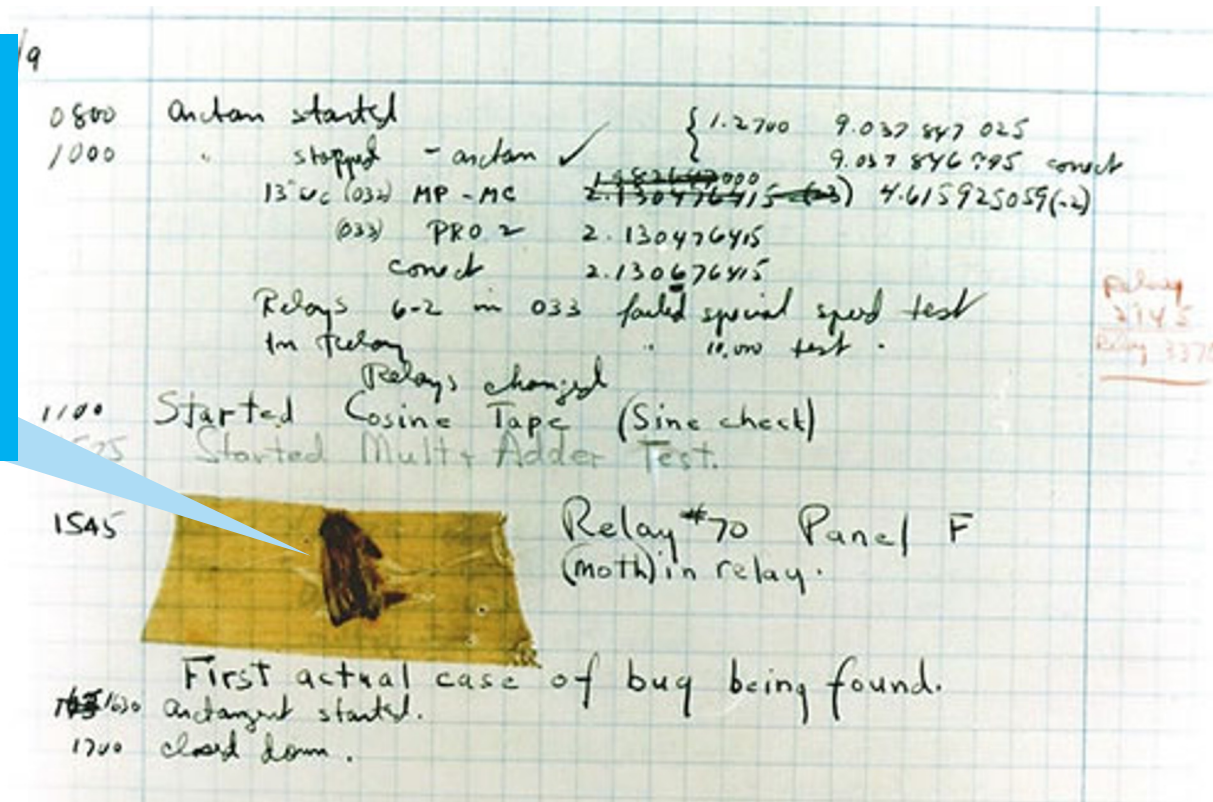 /9
0800 arctan started { 1.2700 9.037 847 025
1000 " stopped - arctan ✓ 9.037 846 795 correct
13" uc (032) MP - MC 2.130476415 (-3) 4.615925059(-2)
(033) PRO 2 2.130476415
correct 2.130676415
Relays 6-2 in 033 failed special speed test
In Relay " 10,000 test .
Relays changed
Relay
2145
Relay 3370
1100 Started Cosine Tape (Sine check)
1525 Started Mult + Adder Test.
1545 Relay #70 Panel F
(moth) in relay.
First actual case of bug being found.
1630 arctangent started.
1700 closed down.